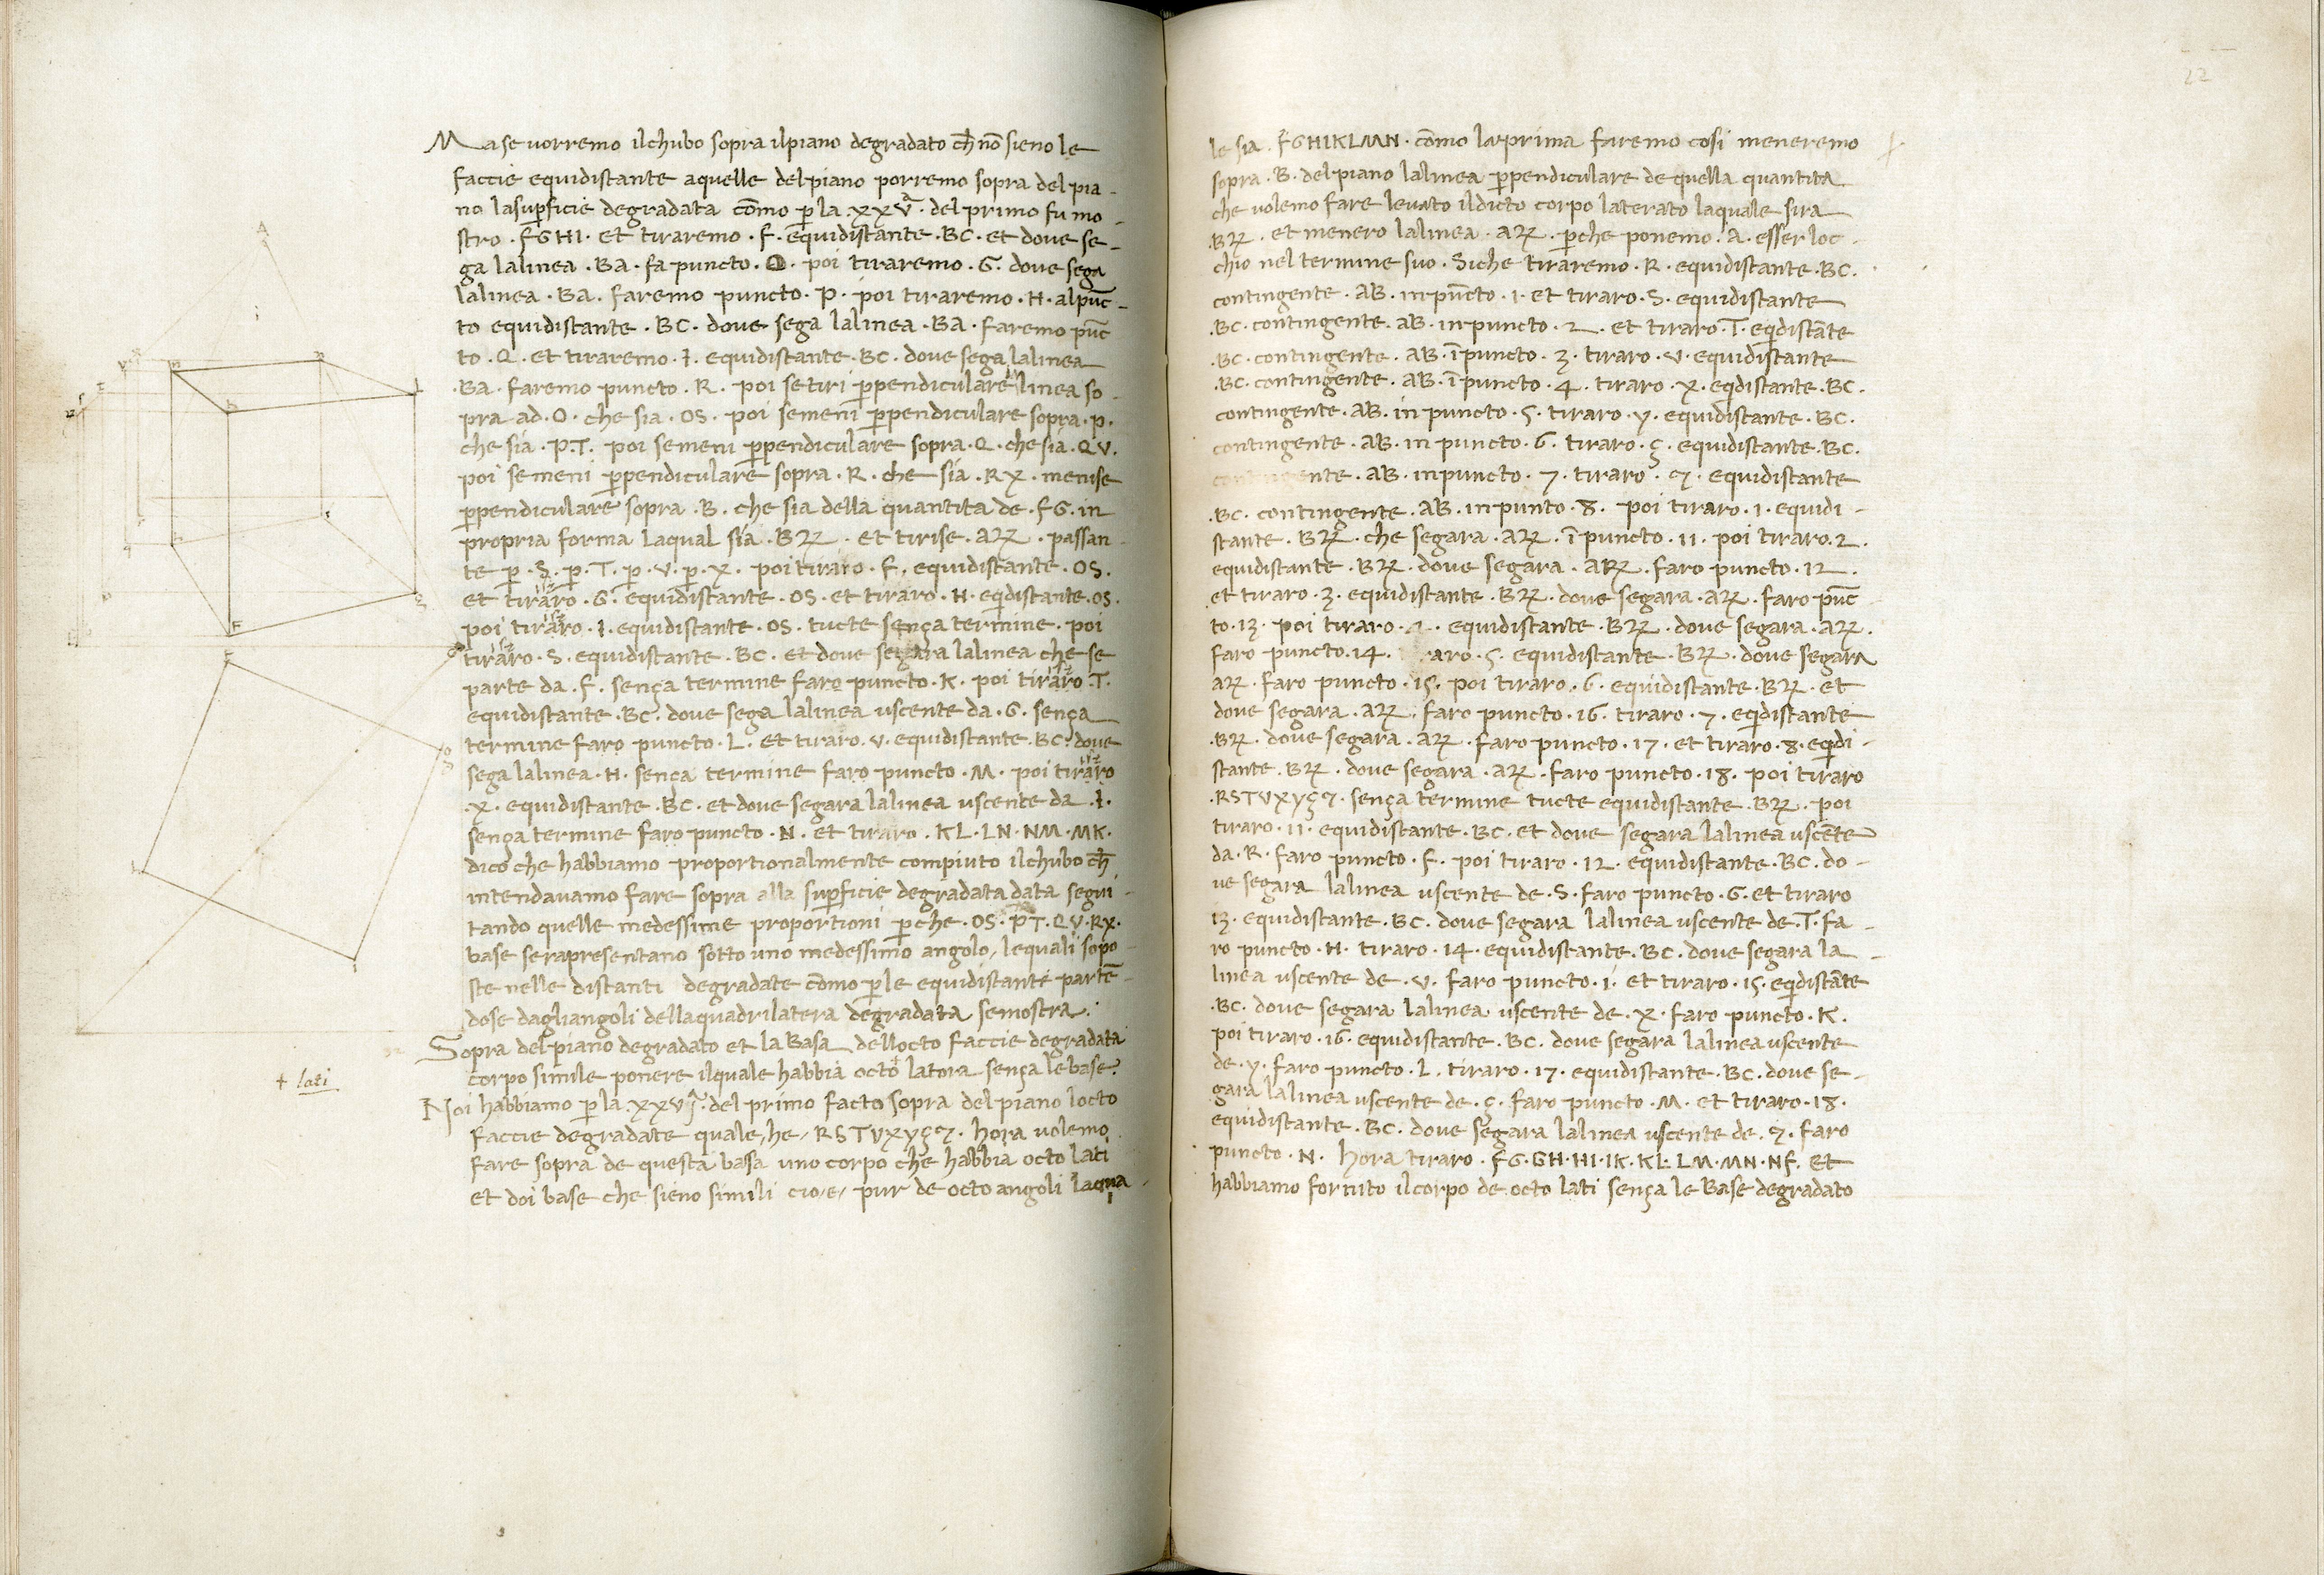 Ma se vorremo il chubo sopra il piano degradato ch̄ nō sieno le
faccie equidistante aquelle del piano porremo sopra del pia-
no la sup̄ficie degradata cōmo p̄ la .xxv.ª del primo fu mo-
stro .FGHI. et tiraremo .F. equidistante .BC. et dove se-
ga la linea .BA. fa puncto .O. poi tiraremo .G. dove sega
la linea .BA. faremo puncto .P. poi tiraremo .H. al pūc-
to equidistante .BC. dove sega la linea .BA. faremo pūc
to .Q. et tiraremo .I. equidistante .BC. dove sega la linea
.BA. faremo puncto .R. poi se tiri p̄pendiculare linea so-
pra ad .O. che sia .OS. poi se meni p̄pendiculare sopra .P.
che sia .P.T. poi se meni p̄pendiculare sopra .Q. che sia .QV.
poi se meni p̄pendiculare sopra .R. che sia .RX. menise
p̄pendiculare sopra .B. che sia della quantita de .FG. in
propria forma laqual sia .BƷ. et tirise .AƷ. passan-
te p̄ .S. p̄ .T. p̄ .V. p̄ .X. poi tiraro .F. equidistante .OS.
et tiraro .G. equidistante .OS. et tiraro .H. eqdistante .OS.
poi tiraro .I. equidistante .OS. tucte sença termine. poi
tiraro .S. equidistante .BC. et dove segara la linea che se
parte da .F. sença termine faro puncto .K. poi tiraro .T.
equidistante .BC. dove sega la linea uscente da .G. sença
termine faro puncto .L. et tiraro .V. equidistante .BC. dove
sega la linea .H. sença termine faro puncto .M. poi tiraro
.X. equidistante .BC. et dove segara la linea uscente da .I.
sença termine faro puncto .N. et tiraro .KL.LN.NM.MK.
dico che habbiamo proportionalmente compiuto il chubo ch̄
intendavamo fare sopra alla sup̄ficie degradata data segui-
tando quelle medessime proportioni p̄che .OS.PT.QV.RX.
base se rapresentano sotto uno medessimo angolo, lequali sopo-
ste nelle distanti degradate cōmo p̄ le equidistante partē-
dose dagli angoli della quadrilatera degradata se mostra.
Sopra del piano degradato et la Basa dell octo faccie degradata
corpo simile ponere il quale habbia octo latora sença le base.
+ lati
Noi habbiamo p̄ la .xxvj.ª del primo facto sopra del piano locto
faccie degradate quale, he, RSTVXYÇ9. hora volemo
fare sopra de questa basa uno corpo che habbia octo lati
et doi base che sieno simili cio, e, pur de octo angoli la qua-
22
le sia .FGHIKLMN. cōmo la prima faremo cosi meneremo
sopra .B. del piano la linea p̄pendiculare de quella quantita
che volemo fare levato il dicto corpo laterato laquale sira
.BƷ. et menero la linea .AƷ. p̄che ponemo .A. esser loc-
chio nel termine suo. Siche tiraremo .R. equidistante .BC.
contingente .AB. in pūcto .1. et tiraro .S. equidistante
.BC. contingente .AB. in puncto .2. et tiraro .T. eqdistāte
.BC. contingente .AB. ī puncto .3. tiraro .V. equidistante
.BC. contingente .AB. ī puncto .4. tiraro .X. eqdistante .BC.
contingente .AB. in puncto .5. tiraro .Y. equidistante .BC.
contingente .AB. in puncto .6. tiraro .Ç. equidistante .BC.
contingente .AB. in puncto .7. tiraro .9. equidistante
.BC. contingente .AB. in punto .8. poi tiraro .1. equidi-
stante .BƷ. che segara .AƷ. ī puncto .11. poi tiraro .2.
equidistante .BƷ. dove segara .ARƷ. faro puncto .12.
et tiraro .3. equidistante .BƷ. dove segara .AƷ. faro pūc-
to .13. poi tiraro .4. equidistante .BƷ. dove segara .AƷ.
faro puncto .14. tiraro .5. equidistante .BƷ. dove segara
AƷ. faro puncto .15. poi tiraro .6. equidistante .BƷ. et
dove segara .AƷ. faro puncto .16. tiraro .7. eqdistante
.BƷ. dove segara .AƷ. faro puncto .17. et tiraro .8. eqdi-
stante .BƷ. dove segara .AƷ. faro puncto .18. poi tiraro
.RSTVXYÇ9. sença termine tucte equidistante .BƷ. poi
tiraro .11. equidistante .BC. et dove segara la linea uscēte
da .R. faro puncto .F. poi tiraro .12. equidistante .BC. do-
ve segara la linea uscente de .S. faro puncto .G. et tiraro
13. equidistante .BC. dove segara la linea uscente de .T. fa-
ro puncto .H. tiraro .14. equidistante .BC. dove segara la
linea uscente de .V. faro puncto .I. et tiraro .15. eqdistāte
.BC. dove segara la linea uscente de .X. faro puncto .K.
poi tiraro .16. equidistante .BC. dove segara la linea uscente
de .Y. faro puncto .L. tiraro .17. equidistante .BC. dove se-
gara la linea uscente de .Ç. faro puncto .M. et tiraro .18.
equidistante .BC. dove segara la linea uscente de .9. faro
puncto .N. hora tiraro .FG.GH.HI.IK.KL.LM.MN.NF. et
habbiamo fornito il corpo de octo lati sença le Base degradato